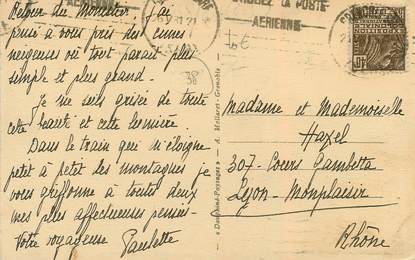 Retour du Monetier, j'ai
pensé à vous près des cimes
neigeuses où tout parait plus
simple et plus grand.
Je me sens grisée de toute
cette beauté et cette lumière
Dans le train qui s'éloigne
petit à petit des montagnes je
vous griffonne à toutes deux
mes plus affectueuses pensées
Votre voyageuse Paulette
38
LA POSTE
AERIENNE
« Dauphiné-Paysages » — A. Mollaret - Grenoble
Madame et Mademoiselle
Hazel
307 - Cours Gambetta
Lyon - Monplaisir
Rhône